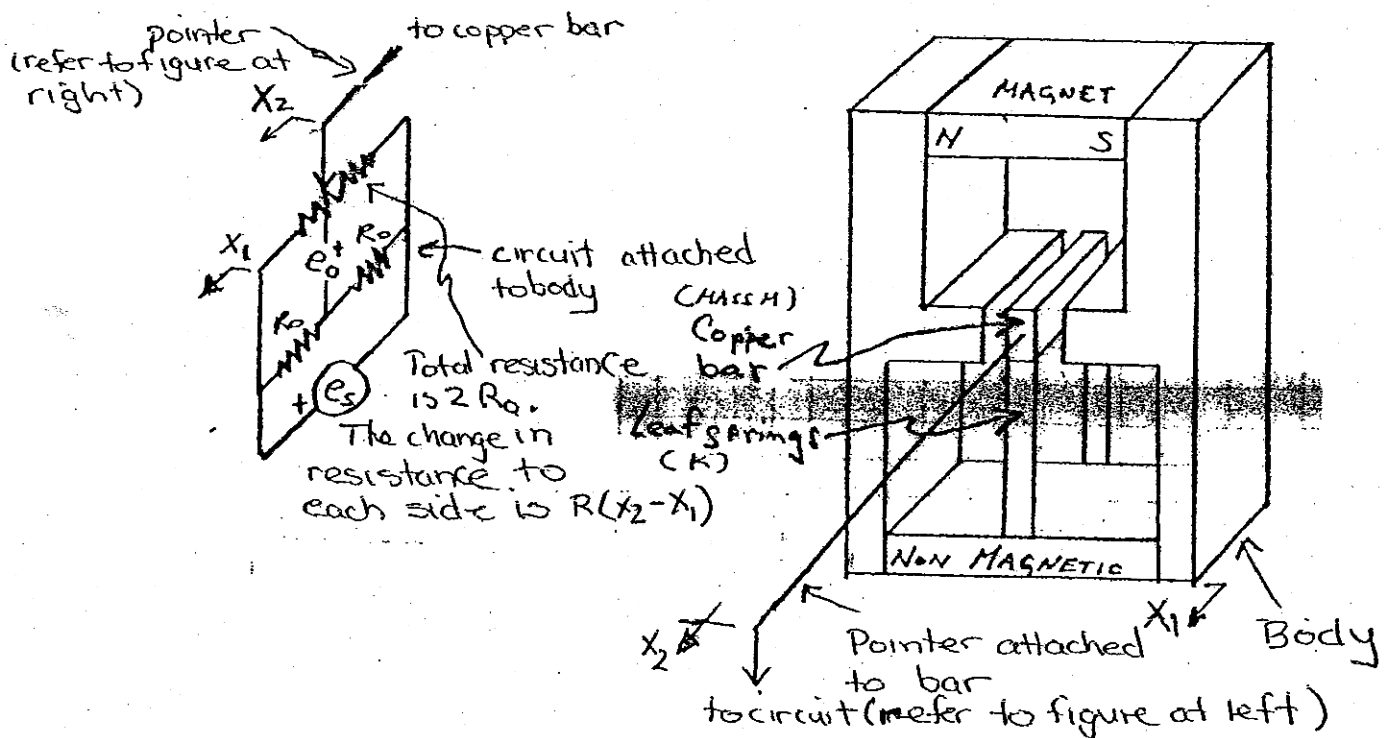 pointer
(refer to figure at
right)
to copper bar
X2
X1
Ro
e0+
Ro
circuit attached
to body
+ es
Total resistance
is 2 Ro.
The change in
resistance to
each side is R(X2-X1)
MAGNET
N S
(MASS M)
Copper
bar
Leaf springs
(K)
NON MAGNETIC
X2
X1
Body
Pointer attached
to bar
to circuit (refer to figure at left)